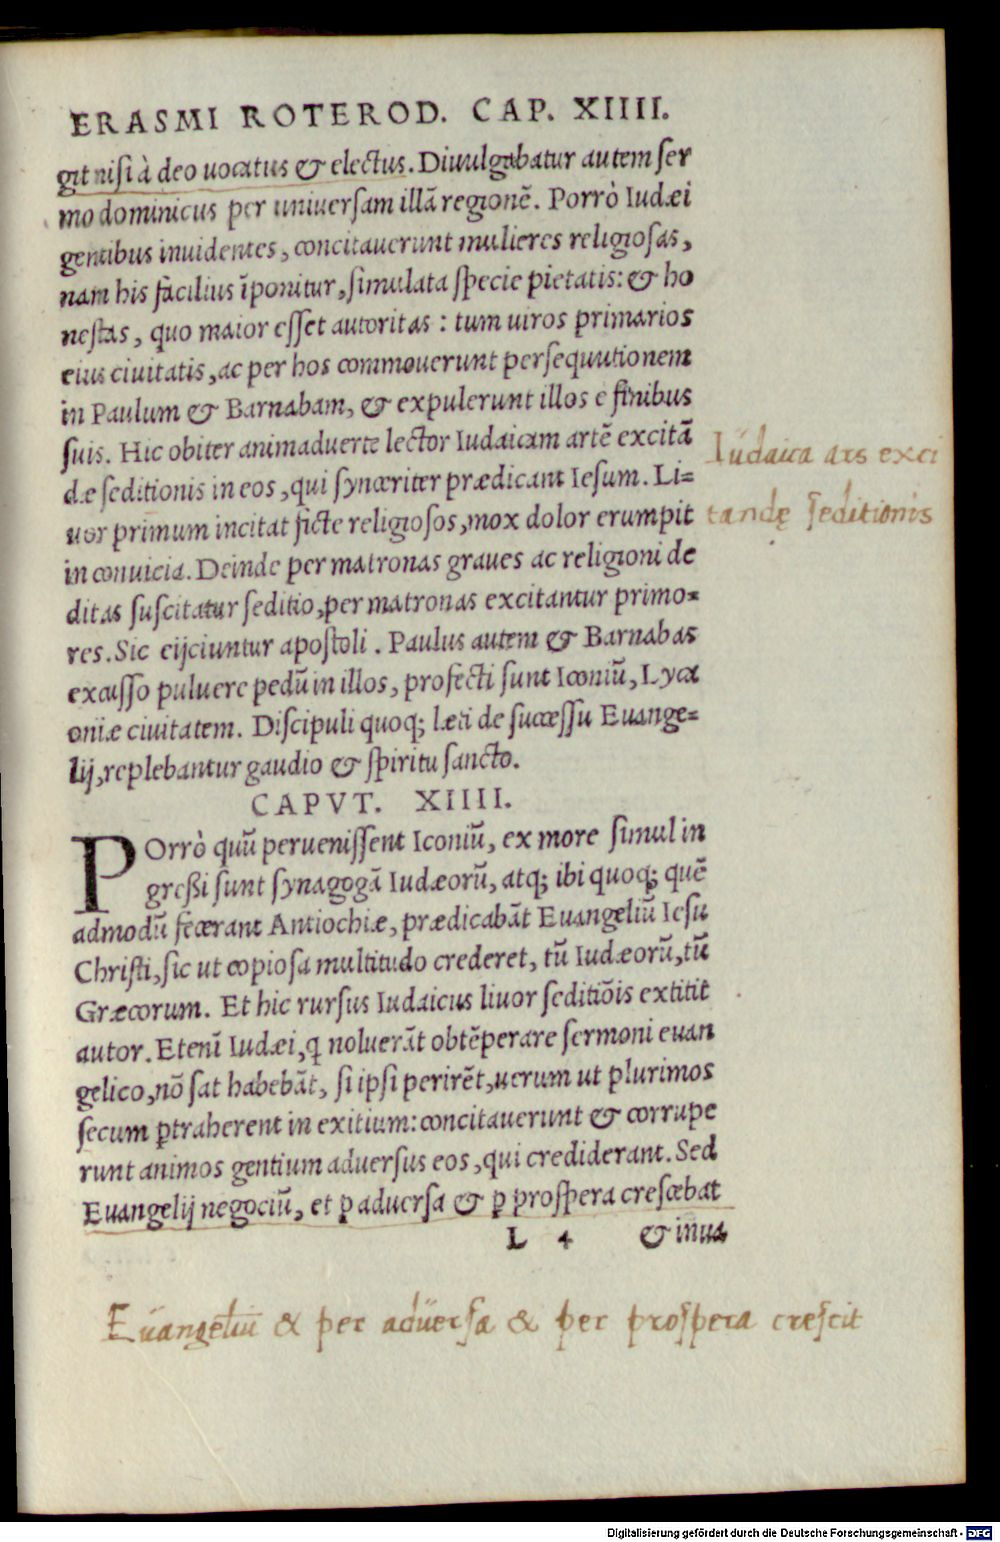 ERASMI ROTEROD. CAP. XIIII.
git nisi à deo uocatus & electus. Diuulgabatur autem ser
mo dominicus per uniuersam illã regionẽ. Porrò Iudæi
gentibus inuidentes, concitauerunt mulieres religiosas,
nam his facilius ĩponitur, simulata specie pietatis: & ho
nestas, quo maior esset autoritas: tum uiros primarios
eius ciuitatis, ac per hos commouerunt persequutionem
in Paulum & Barnabam, & expulerunt illos e finibus
suis. Hic obiter animaduerte lector Iudaicam artẽ excitã
dæ seditionis in eos, qui synceriter prædicant Iesum. Li=
uor primum incitat ficte religiosos, mox dolor erumpit
in conuicia. Deinde per matronas graues ac religioni de
ditas suscitatur seditio, per matronas excitantur primo=
res. Sic eijciuntur apostoli. Paulus autem & Barnabas
excusso puluere pedũ in illos, profecti sunt Iconiũ, Lyca
oniæ ciuitatem. Discipuli quoq; læti de successu Euange=
lij, replebantur gaudio & spiritu sancto.
Iüdaica ars exci
tandę seditionis
CAPVT. XIIII.
POrrò quũ peruenissent Iconiũ, ex more simul in
greßi sunt synagogã Iudæorũ, atq; ibi quoq; quẽ
admodũ fecerant Antiochiæ, prædicabãt Euangeliũ Iesu
Christi, sic ut copiosa multitudo crederet, tũ Iudæorũ, tũ
Græcorum. Et hic rursus Iudaicus liuor seditiõis extitit
autor. Etenĩ Iudæi, q noluerãt obtẽperare sermoni euan
gelico, nõ sat habebãt, si ipsi perirẽt, uerum ut plurimos
secum ꝑtraherent in exitium: concitauerunt & corrupe
runt animos gentium aduersus eos, qui crediderant. Sed
Euangelij negociũ, et ꝑ aduersa & ꝑ prospera crescebat
L 4 & inua
Eüangeliũ & per adüersa & per prospera crescit
Digitalisierung gefördert durch die Deutsche Forschungsgemeinschaft - DFG